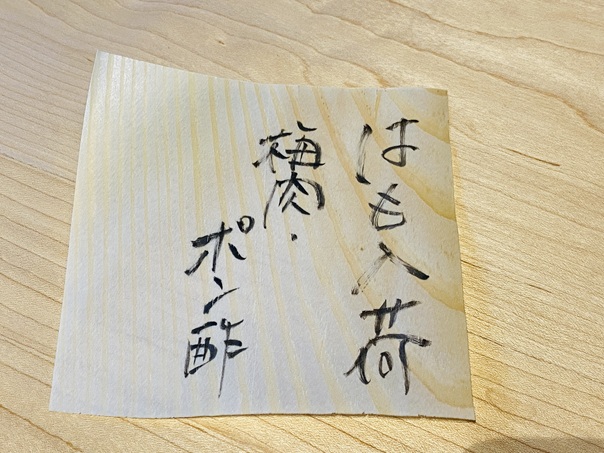 はも入荷
梅肉・
ポン酢